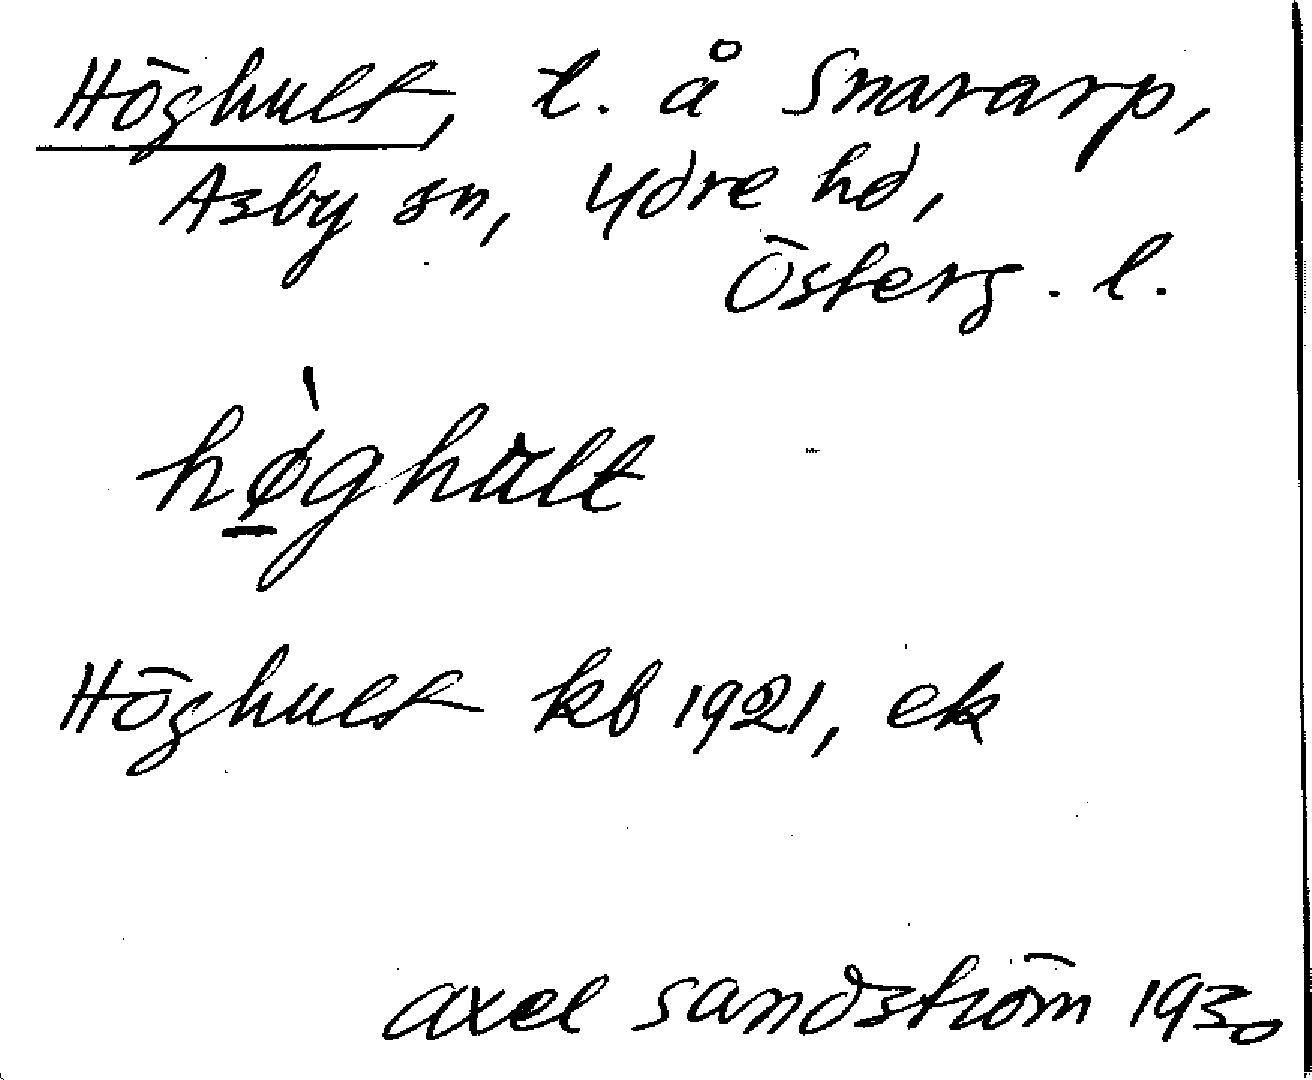 Höghult, t. å Snararp,
Asby sn, Ydre hd,
Österg. l.
hø̲̀ghult
Höghult kb 1921, ek
axel sandström 1930